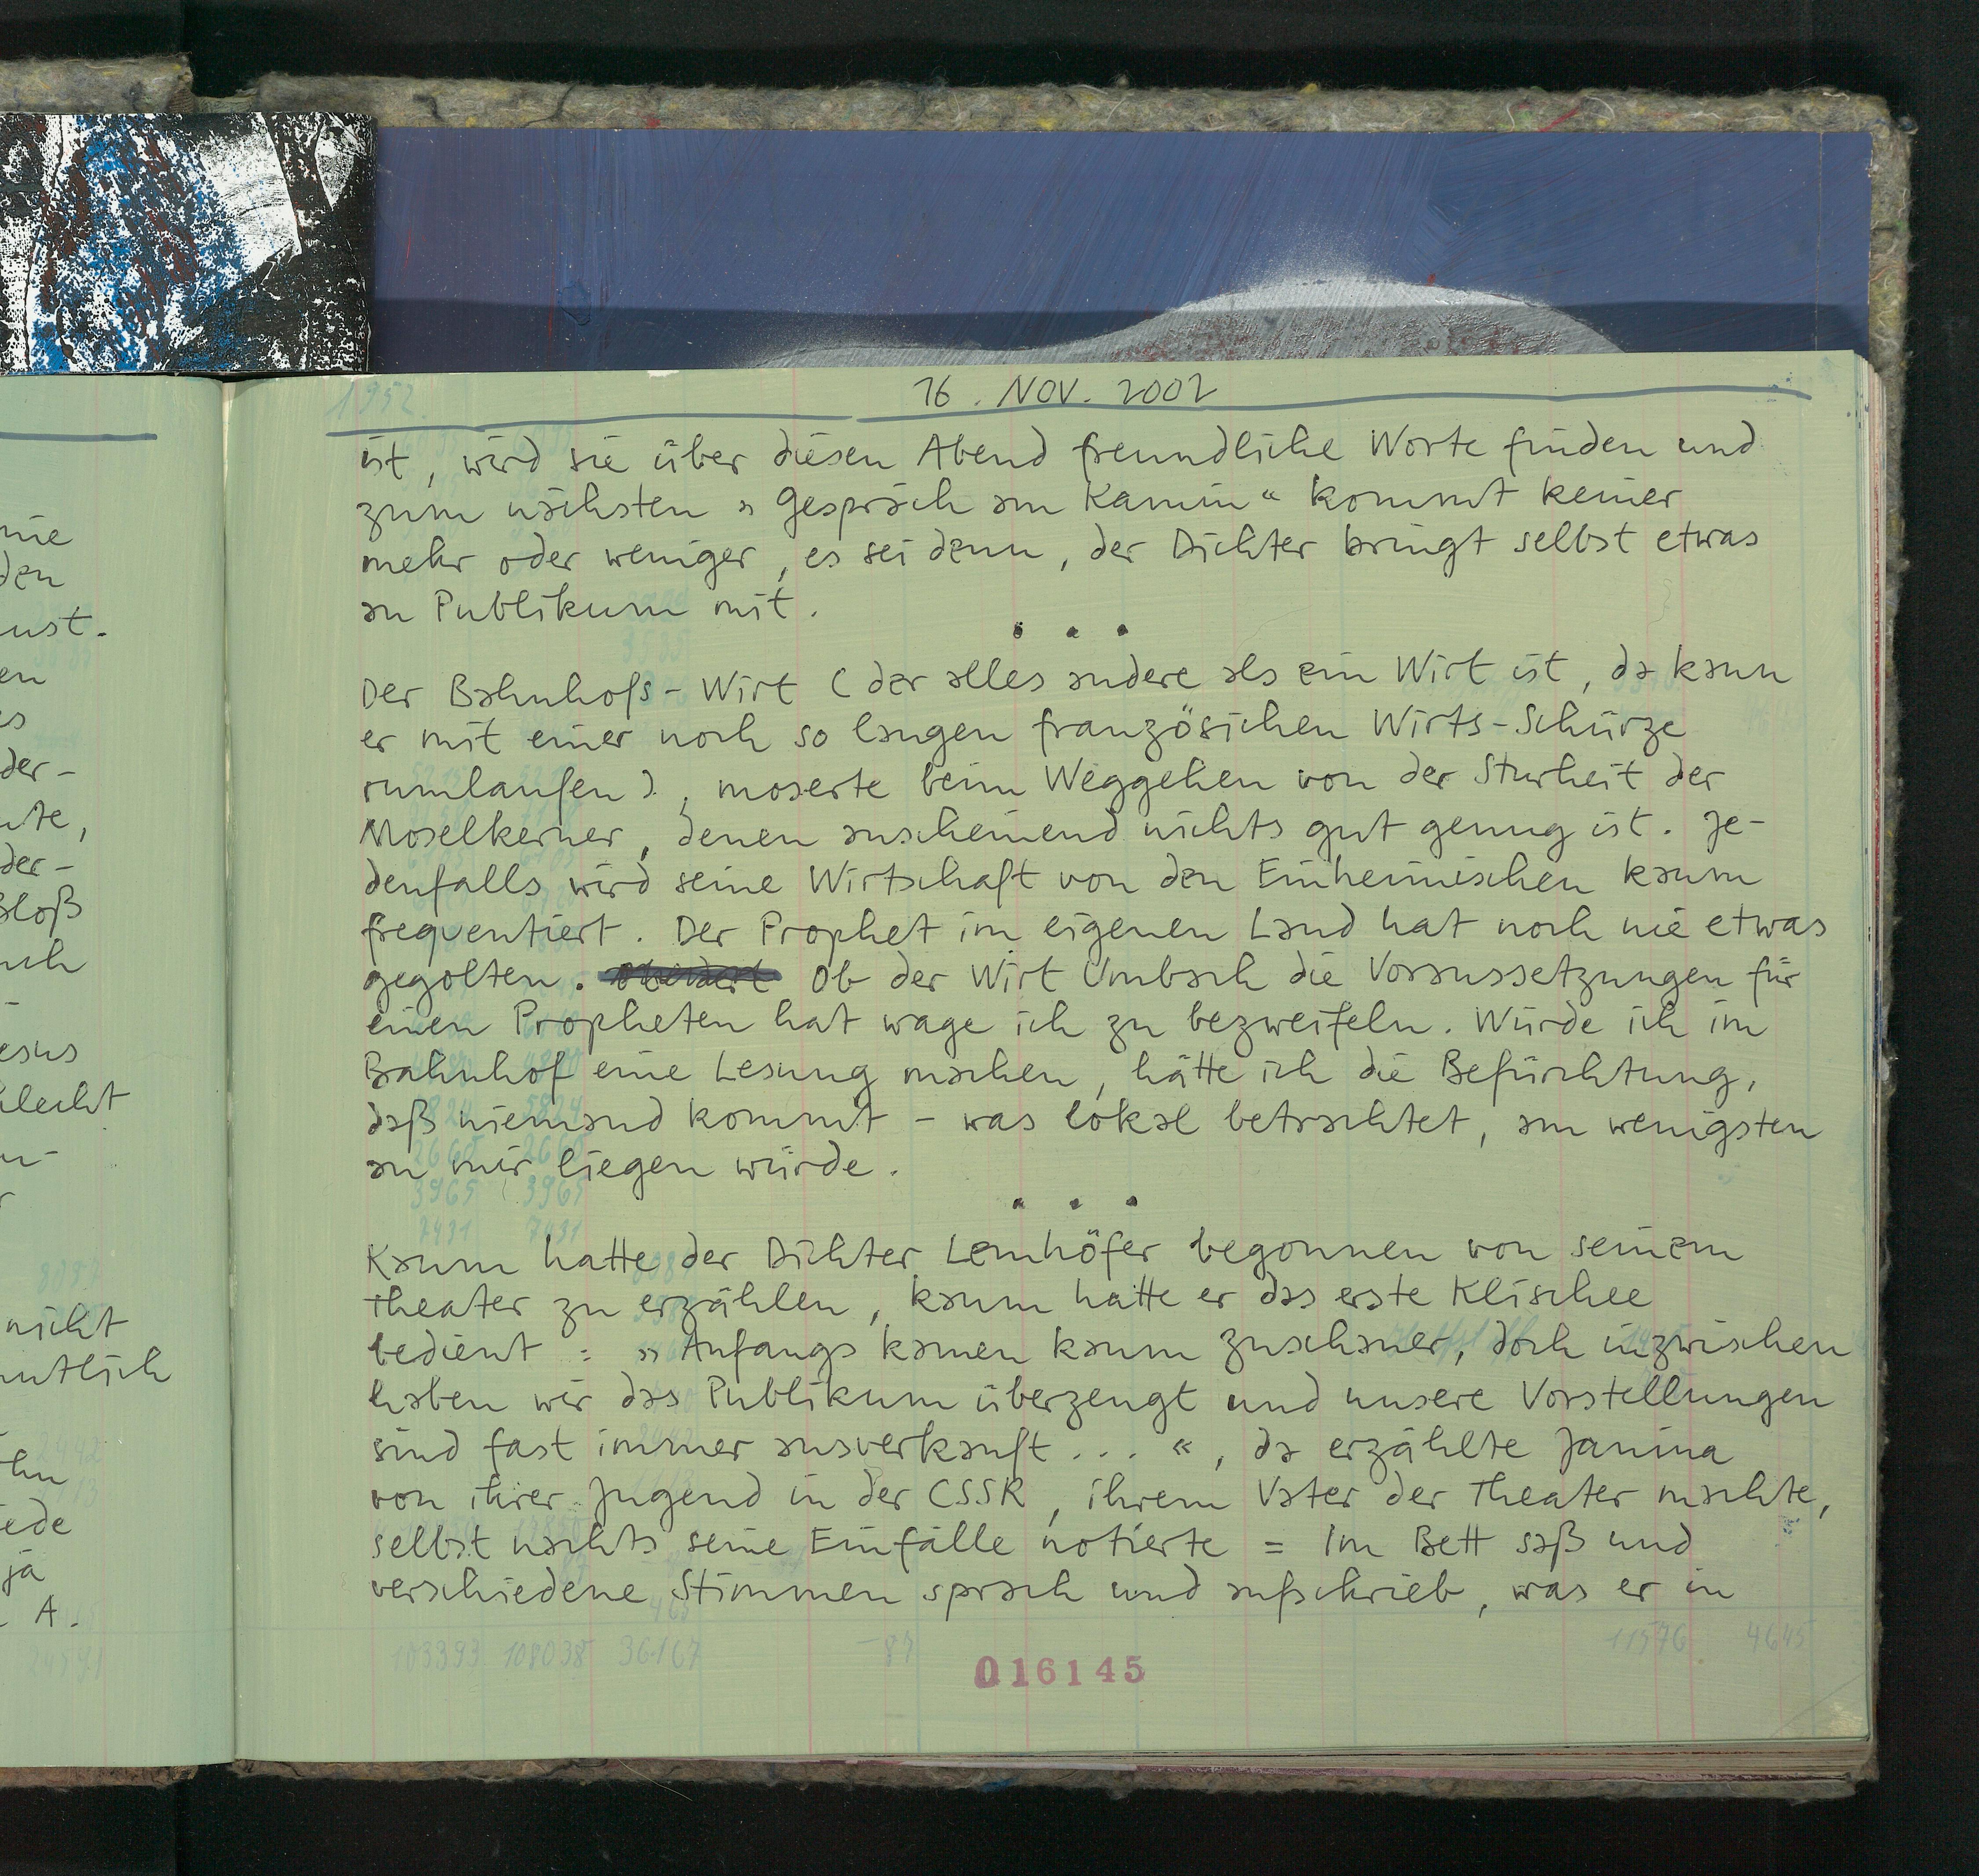 1952.
16. NOV. 2002
ist, wird sie über diesen Abend freundliche Worte finden und
zum nächsten » Gespräch am Kamin « kommt keiner
mehr oder weniger, es sei denn, der Dichter bringt selbst etwas
an Publikum mit.
. . .
Der Bahnhofs-Wirt (der alles andere als ein Wirt ist, da kann
er mit einer noch so langen französichen Wirts-Schürze
rumlaufen), moserte beim Weggehen von der Sturheit der
Moselkerner, denen anscheinend nichts gut genug ist. Je-
denfalls wird seine Wirtschaft von den Einheimischen kaum
frequentiert. Der Prophet im eigenen Land hat noch nie etwas
gegolten. Ob der Wirt Umbach die Voraussetzungen für
einen Propheten hat wage ich zu bezweifeln. Würde ich im
Bahnhof eine Lesung machen, hätte ich die Befürchtung,
daß niemand kommt - was lokal betrachtet, am wenigsten
an mir liegen würde.
. . .
Kaum hatte der Dichter Lemhöfer begonnen von seinem
Theater zu erzählen, kaum hatte er das erste Klischee
bedient : » Anfangs kamen kaum Zuschauer, doch inzwischen
haben wir das Publikum überzeugt und unsere Vorstellungen
sind fast immer ausverkauft ... «, da erzählte Janina
von ihrer Jugend in der CSSR, ihrem Vater der Theater machte,
selbst nachts seine Einfälle notierte = Im Bett saß und
verschiedene Stimmen sprach und aufschrieb, was er in
103393 108038 36167 11576 4645
016145
nie
den
ust.
en
es
der-
der-
Bloß
esus
nicht
ede
ja
A.